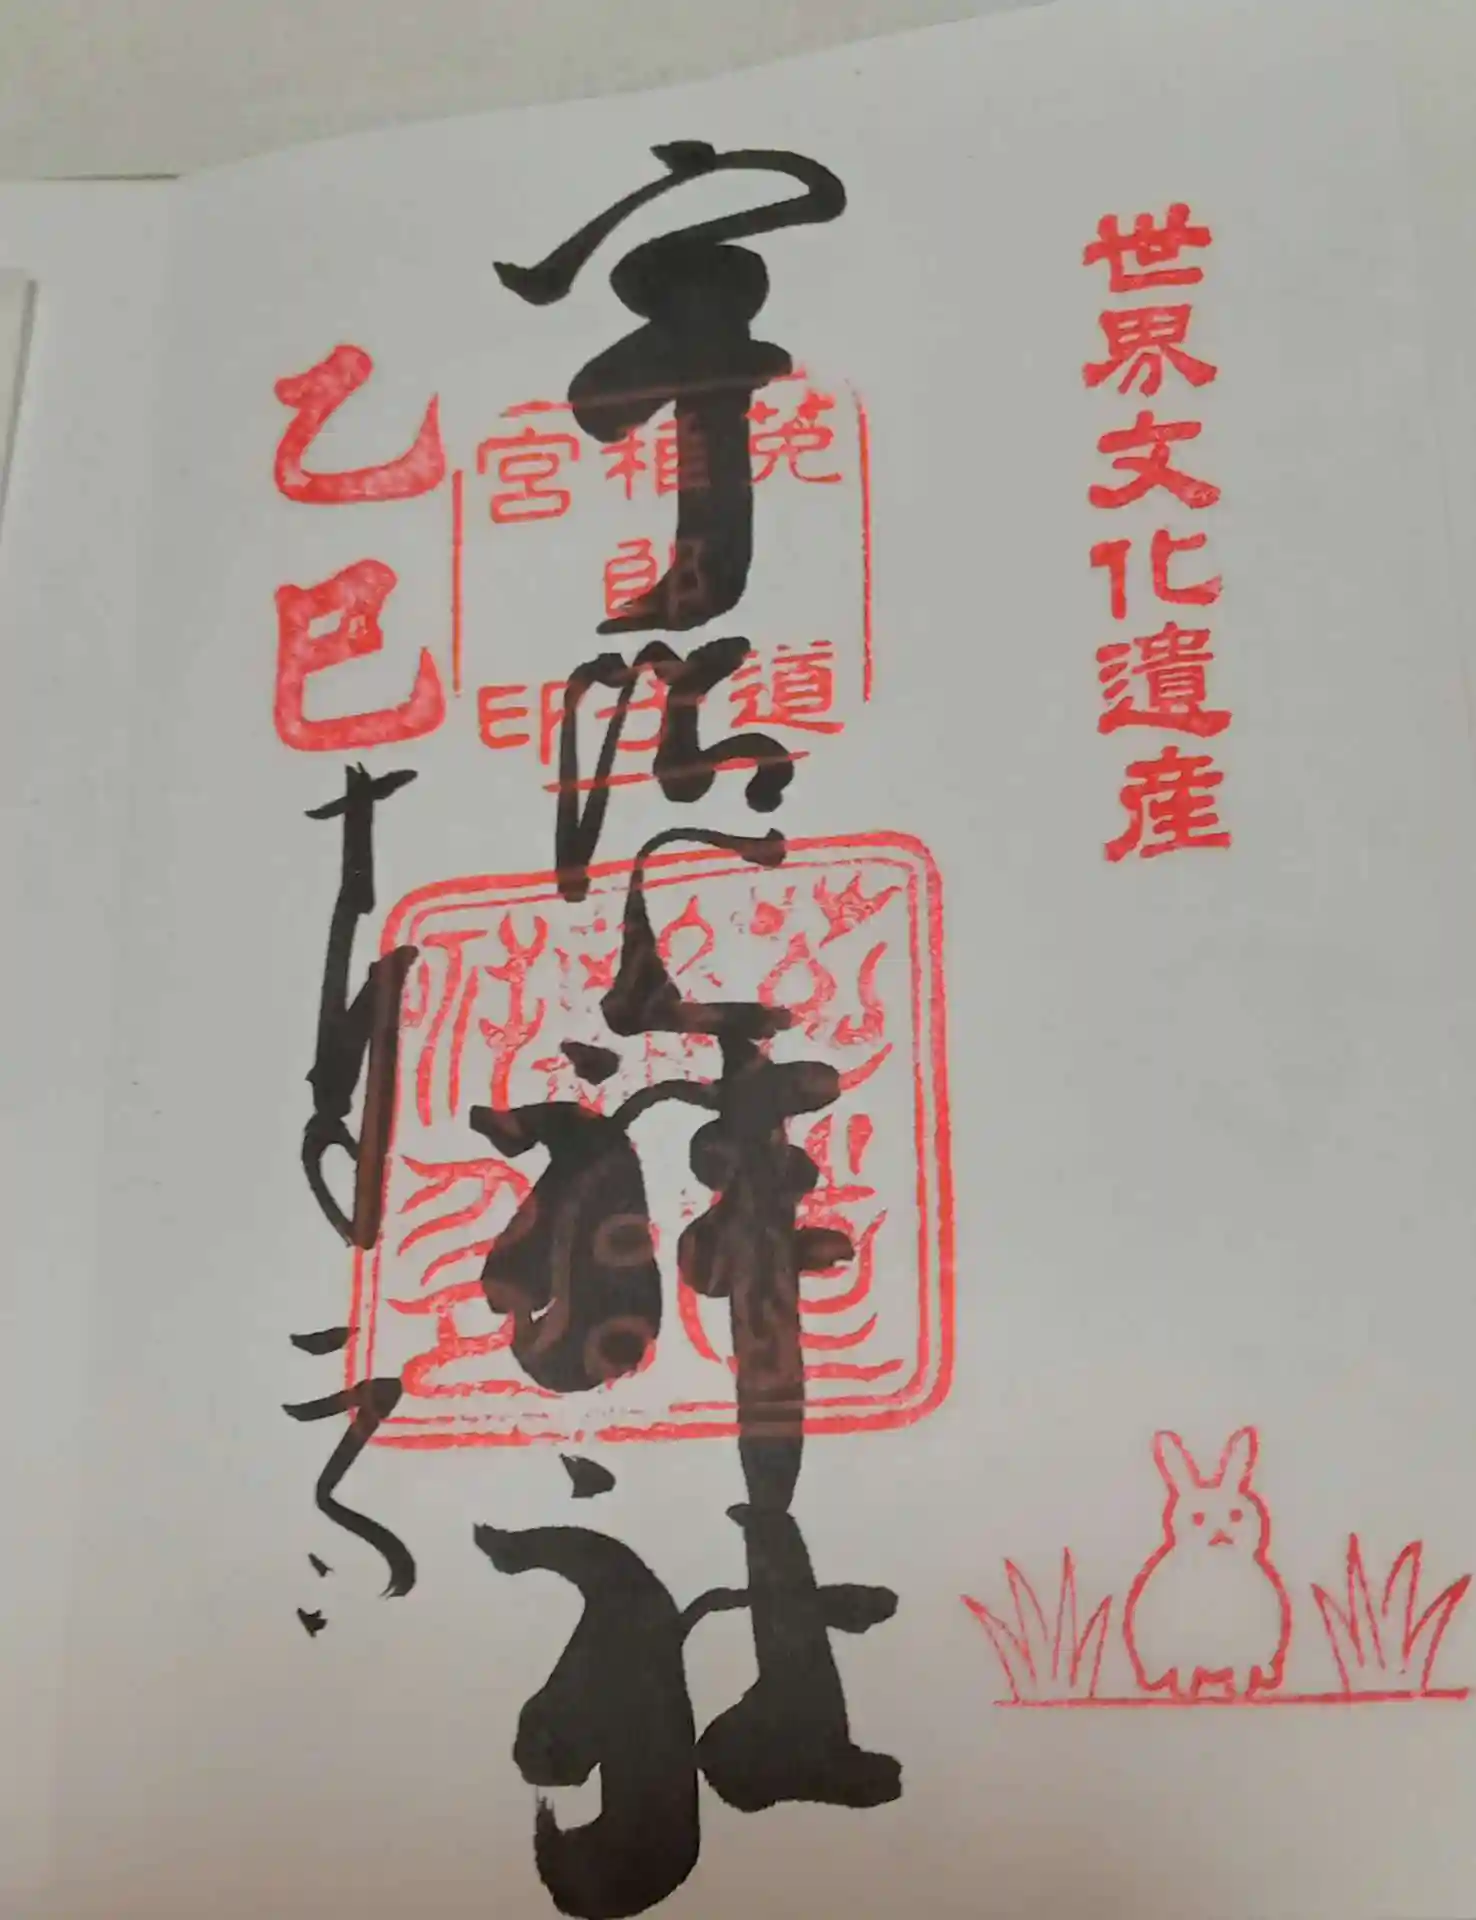 世界文化遺産
宇治上神社
菟道
稚郎子
宮印
乙巳